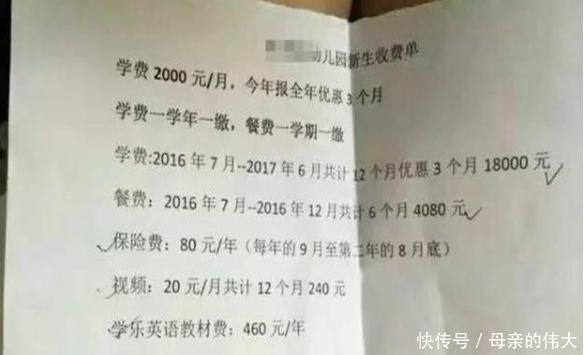 幼儿园新生收费单
学费 2000 元/月，今年报全年优惠 3 个月
学费一学年一缴，餐费一学期一缴
学费:2016 年 7 月--2017 年 6 月共计 12 个月优惠 3 个月 18000 元
餐费：2016 年 7 月--2016 年 12 月共计 6 个月 4080 元
保险费：80 元/年（每年的 9 月至第二年的 8 月底）
视频：20 元/月共计 12 个月 240 元
学乐英语教材费：460 元/年
快传号 / 母亲的伟大